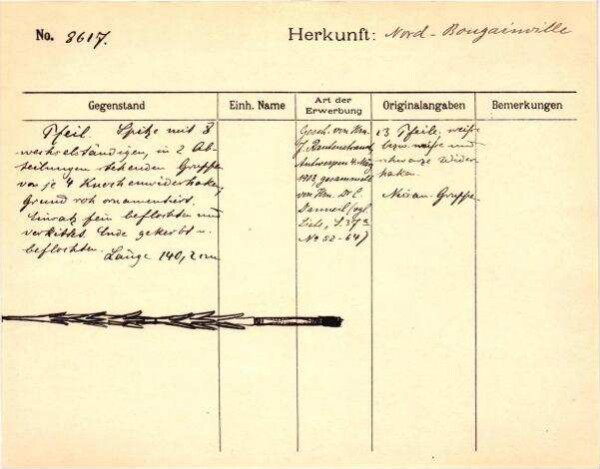 No. 3617.
Herkunft: Nord-Bougainville
Gegenstand
Einh. Name
Art der Erwerbung
Originalangaben
Bemerkungen
Pfeil. Spitze mit 8
wechselständigen, in 2 Ab-
teilungen stehenden Gruppen
von je 4 Knochenwiderhaken,
Grund rot ornamentiert.
Einsatz fein beflochten und
verkittet. Ende gekerbt u.
beflochten. Länge 140,2 cm
Gesch. von Hrn.
J.
Antwerpen
1913, gesammelt
von Hrn. Dr. E.
(vgl.
Liste, S. 37
No 52-64)
13 Pfeile, weiße
bezw. weiße und
schwarze Wider-
haken.
Gruppe.